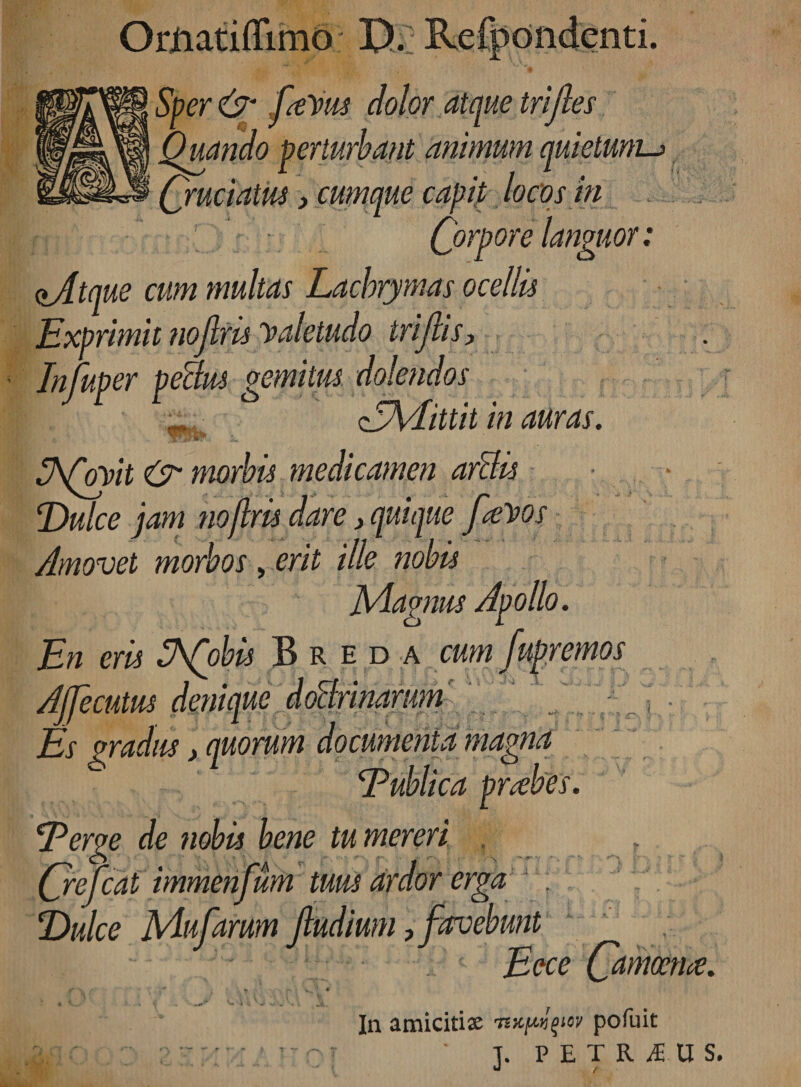 Ornatiſſimo D. Reſpondenti.
ASper & ſævus dolor atque triſtes
Quando perturbant animum quietum
Cruciatus, cumque capit locos in
Corpore languor:
Atque cum multas Lachrymas ocellis
Exprimit noſtris valetudo triſtis,
Inſuper pectus gemitus dolendos
Mittit in auras.
Novit & morbis medicamen arctis
Dulce jam noſtris dare, quique ſævos
Amovet morbos, erit ille nobis
Magnus Apollo.
En eris Nobis BREDA cum ſupremos
Aſſecutus denique doctrinarum
Es gradus, quorum documenta magna
Publica præbes.
Perge de nobis bene tu mereri
Creſcat immenſum tuus ardor erga
Dulce Muſarum ſtudium, favebunt
Ecce Camœnæ.
In amicitiæ τεκμήριον poſuit
J. PETRÆUS.